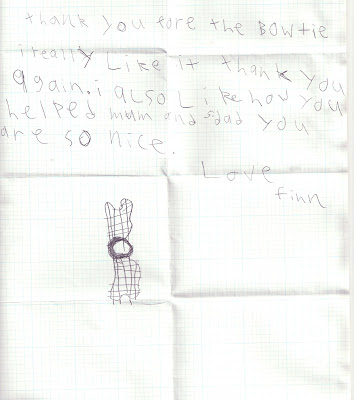 thank you fore the BOwtie
i really Like it thank you
again. i also Like how you
helped mum and dad you
are so nice.
Love
finn